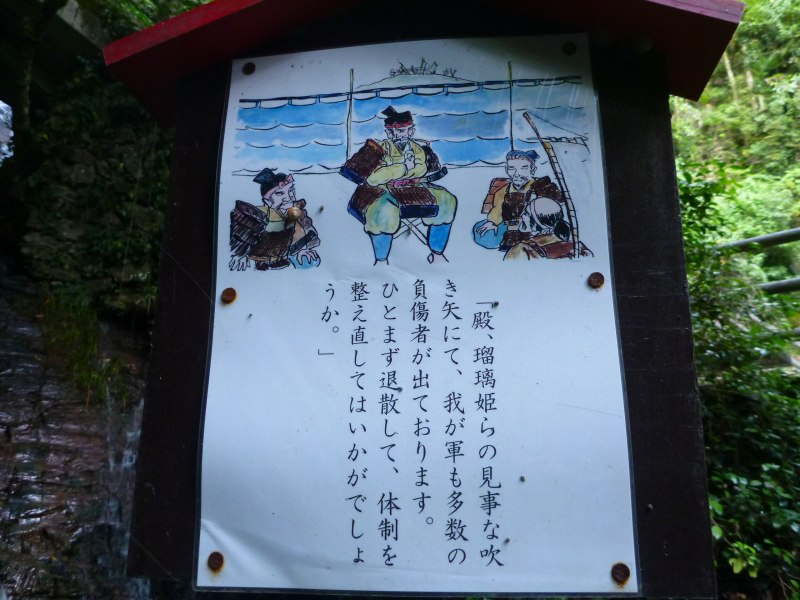 「殿、瑠璃姫らの見事な吹
き矢にて、我が軍も多数の
負傷者が出ております。
ひとまず退散して、体制を
整え直してはいかがでしょ
うか。」